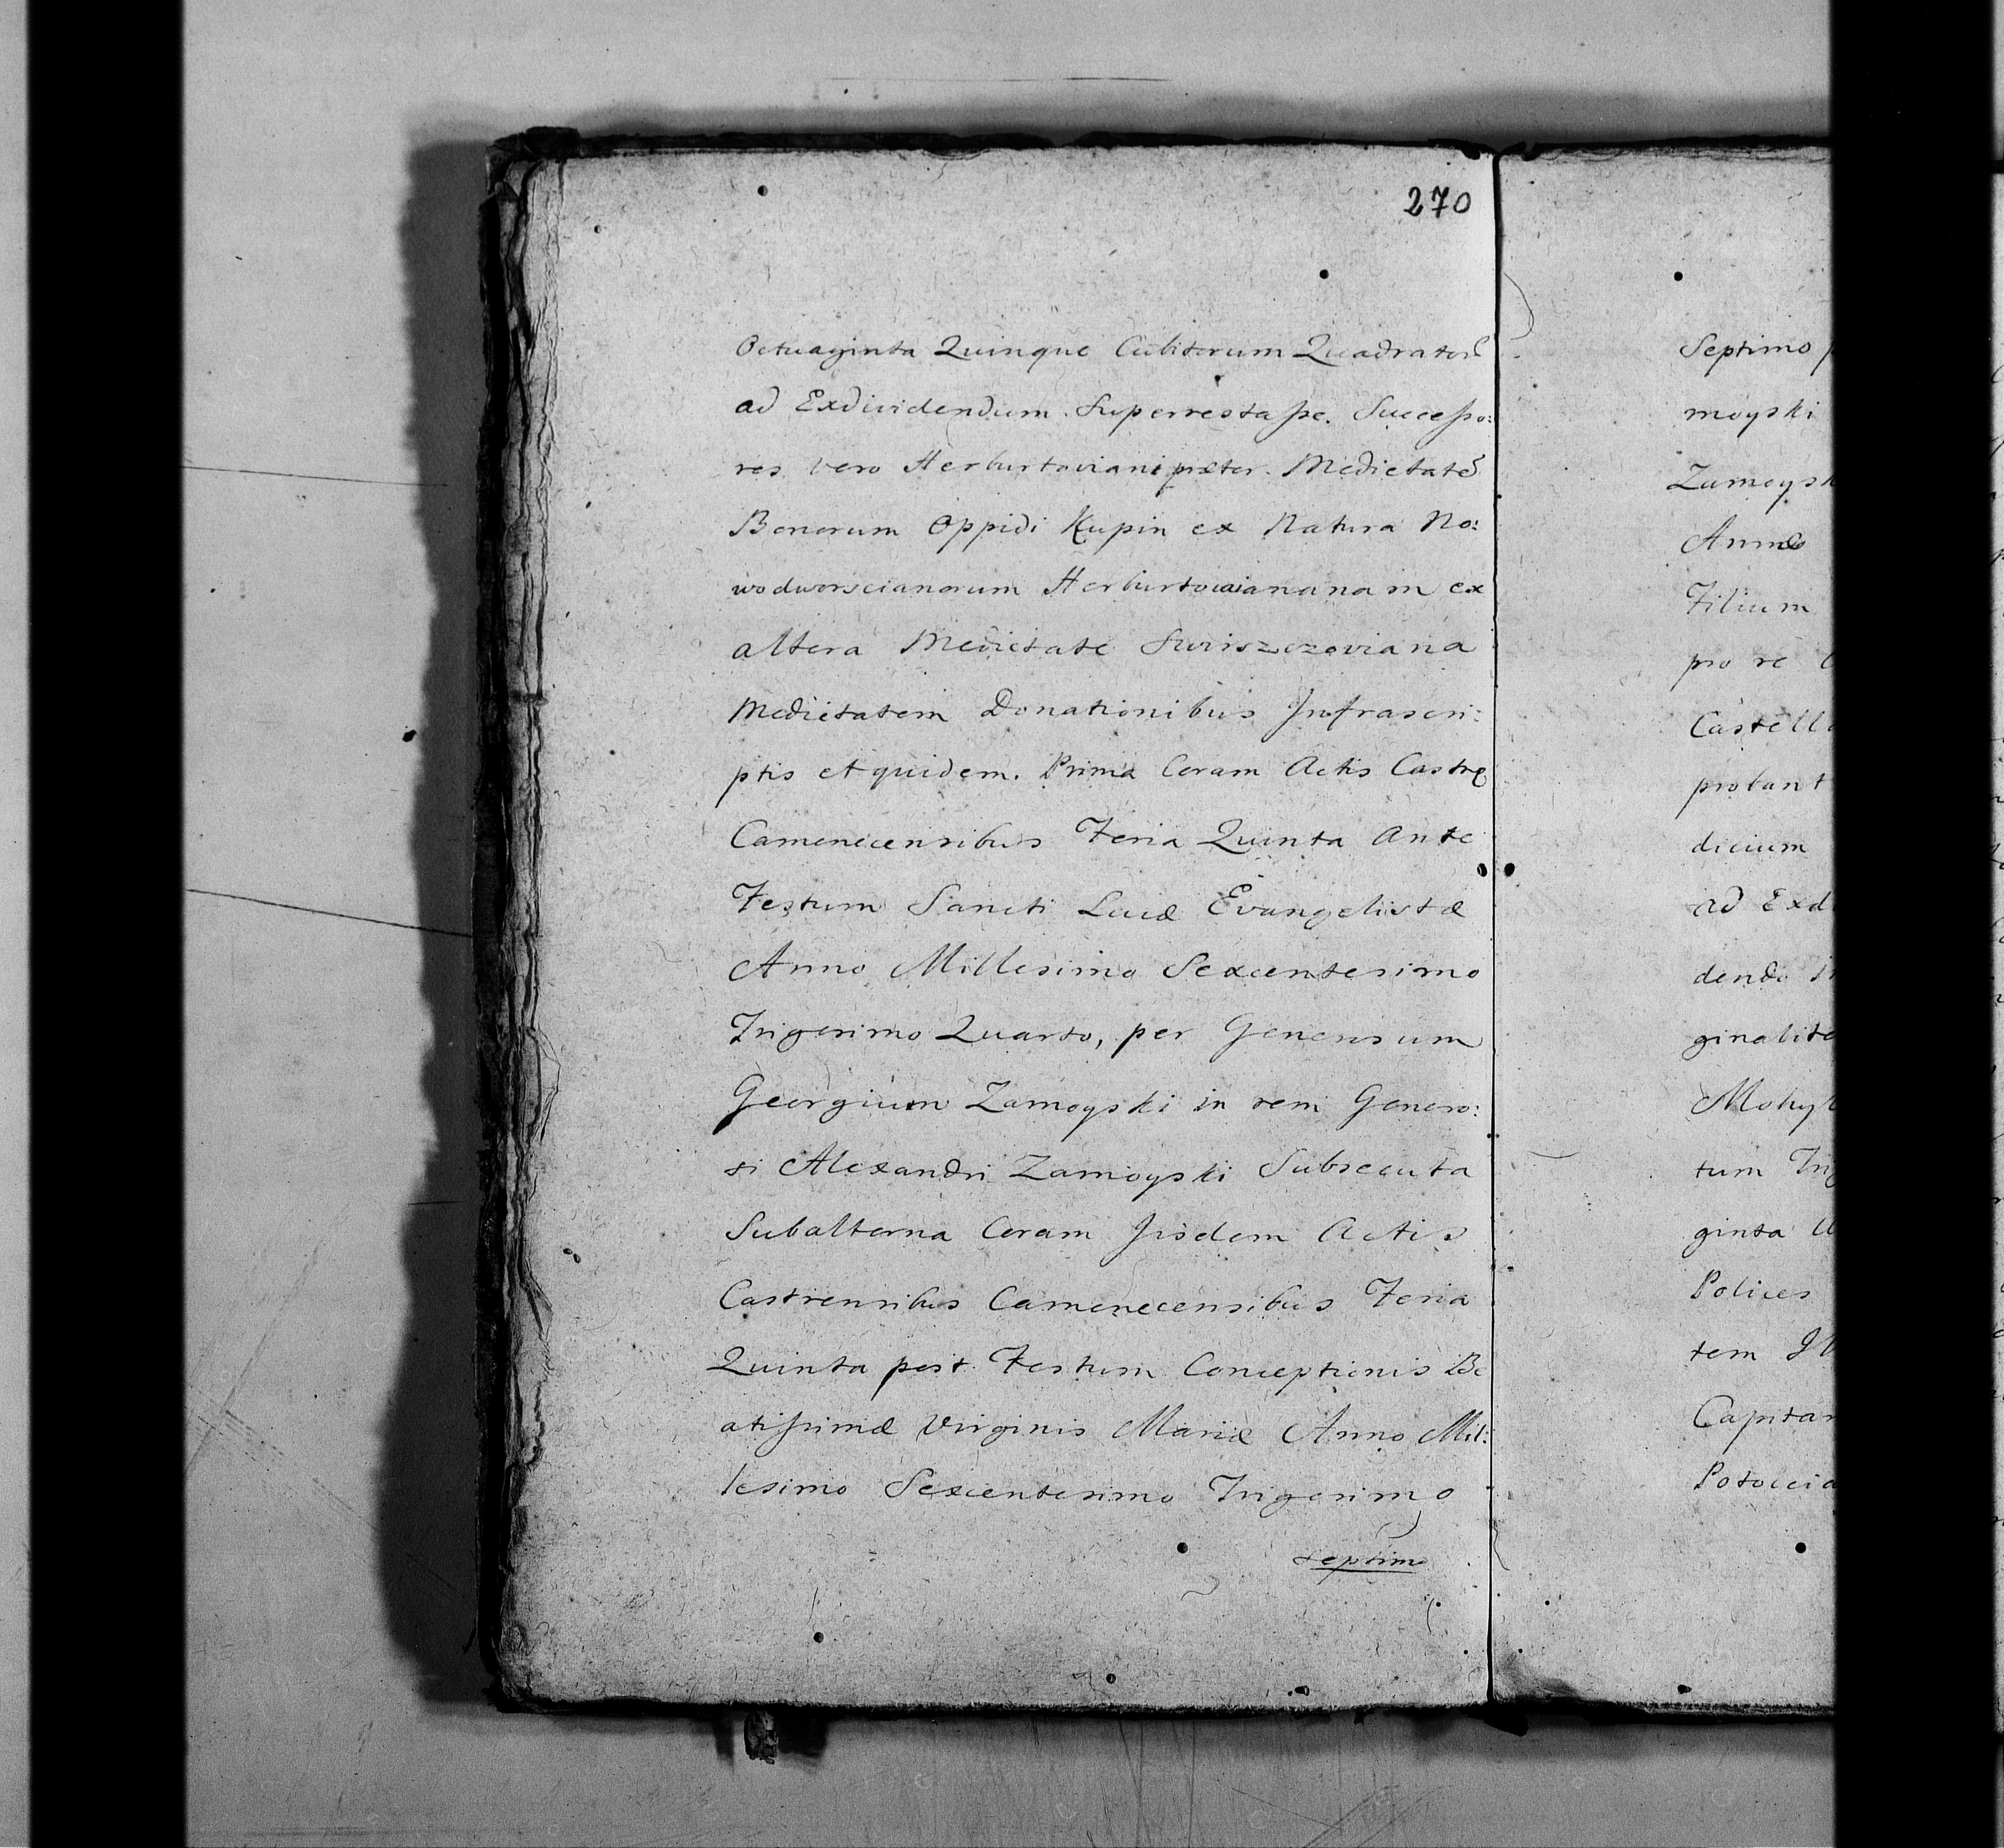 270
Octuaginta Quinque Cubitorum Quadrator
ad Exdividendum Superrestasse. Successo:
res vero Herburtoviani præter Medietatē
Bonorum Oppidi Kupin ex Natura No:
wodworscianorum Herburtowianana m ex
altera Medietate Swiszczoviana
Medietatem Donationibus Infrascri:
ptis et quidem. Prima Coram Actis Castr
Camenecensibus Feria Quinta Ante
Festum Sancti Lucæ Evangelistæ
Anno Millesimo Sexcentesimo
Trigesimo Quarto, per Generosum
Georgium Zamoyski in rem Genero:
si Alexandri Zamoyski Subsecuta
Subalterna Coram Iisdem Actis
Castrensibus Camenecensibus Feria
Quinta post Festum Conceptionis Be
atissimæ Virginis Mariæ Anno Mil:
lesimo Sexcentesimo Trigesimo
Septimo
Septimo
moyski
Zamoysk
Annæ
Filium
pro re
Castell
probant
dicium
ad Exd
dendo
ginalite
Mohy
tum
ginta
Polices
tem
Capita
Potoccia